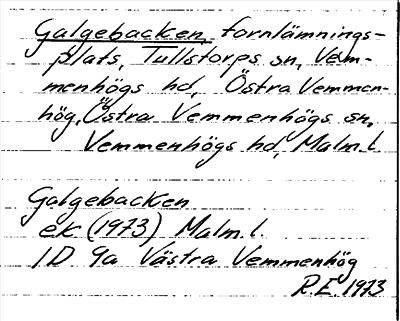 Galgebacken, fornlämnings-
plats, Tullstorps sn, Vem-
menhögs hd, Östra Vemmen-
hög, Östra Vemmenhögs sn,
Vemmenhögs hd, Malm. l.
Galgebacken
ek (1973) Malm. l.
1D 9a Västra Vemmenhög
R.E. 1973